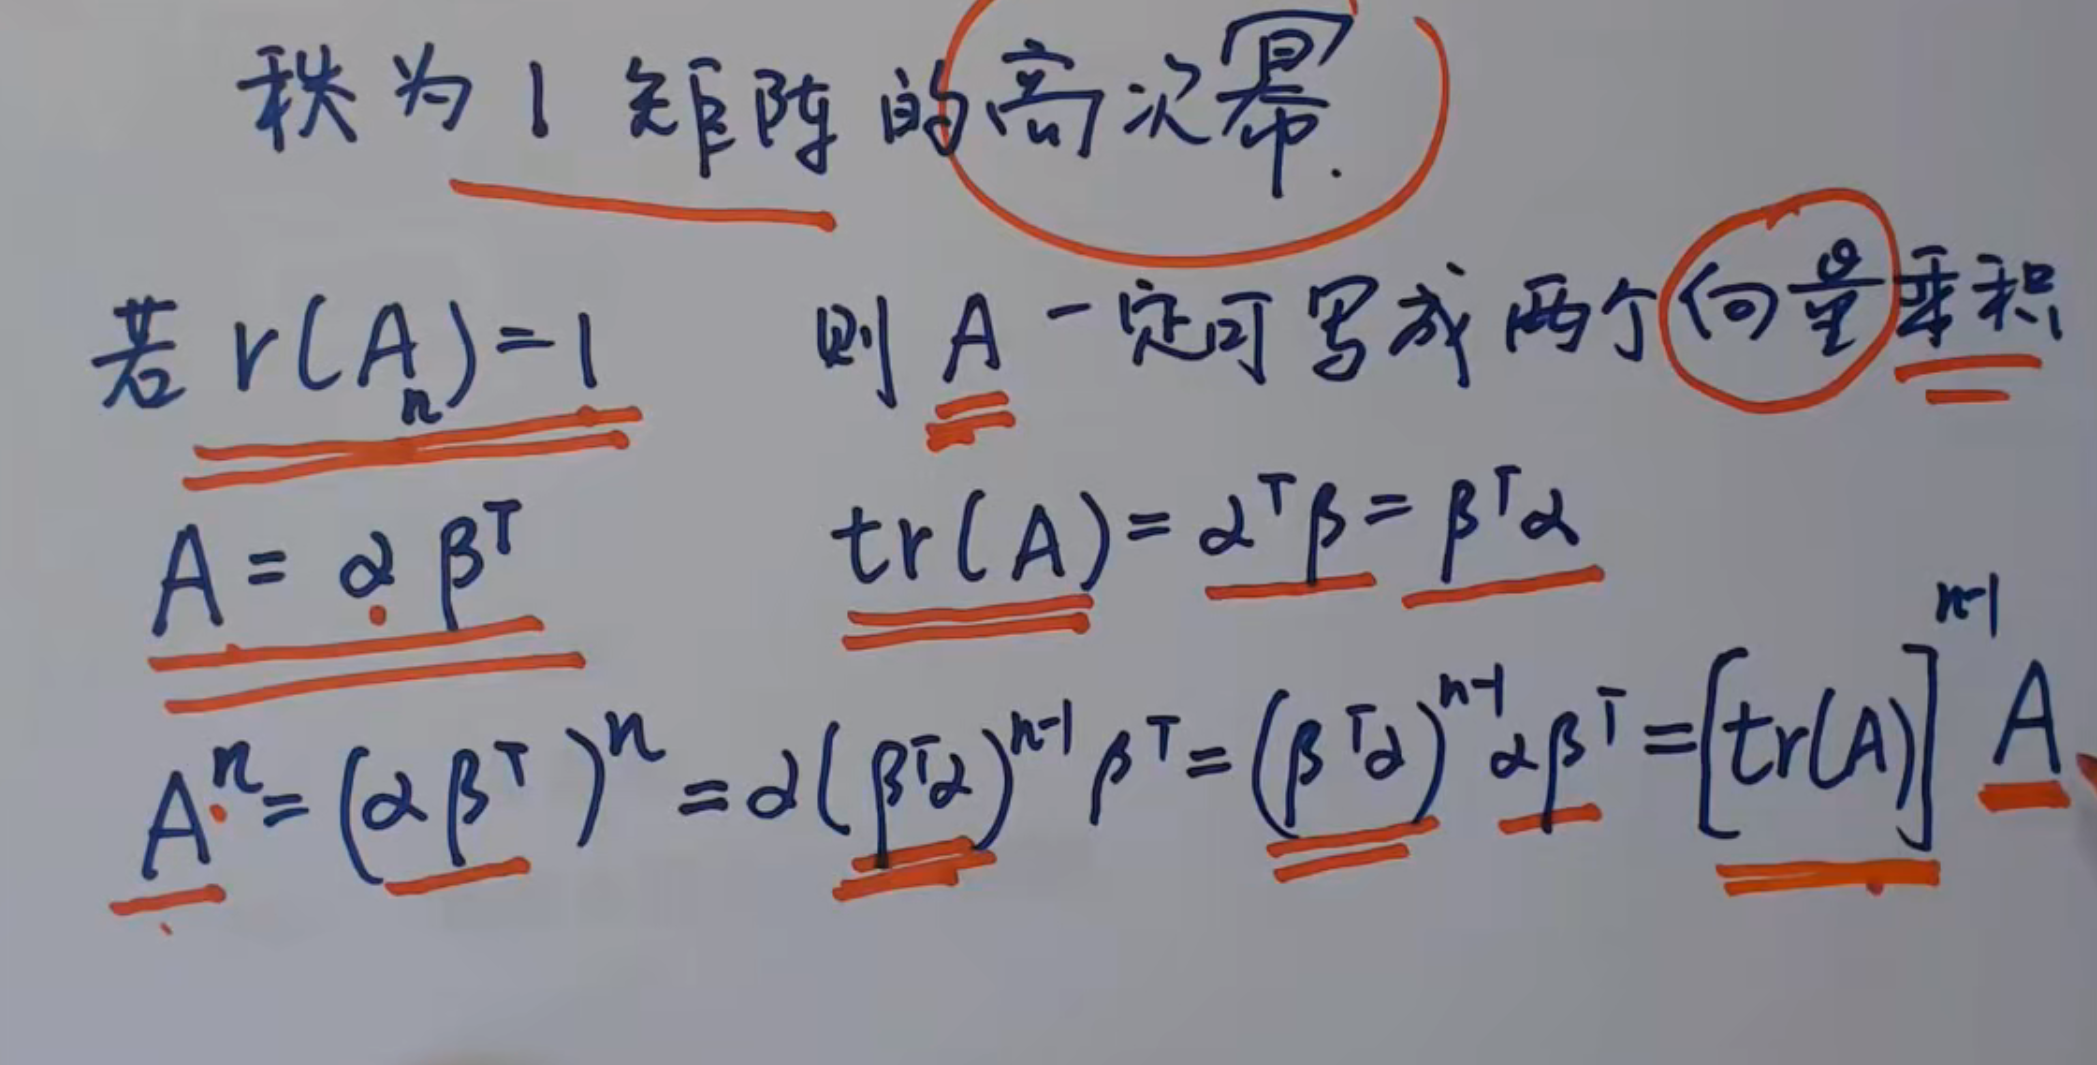 秩为1矩阵的高次幂.
若 r(Aₙ)=1 则 A 一定可写成两个向量乘积
A = α βᵀ tr(A) = αᵀβ = βᵀα
Aⁿ = (αβᵀ)ⁿ = α(βᵀα)ⁿ⁻¹βᵀ = (βᵀα)ⁿ⁻¹αβᵀ = [tr(A)]ⁿ⁻¹A